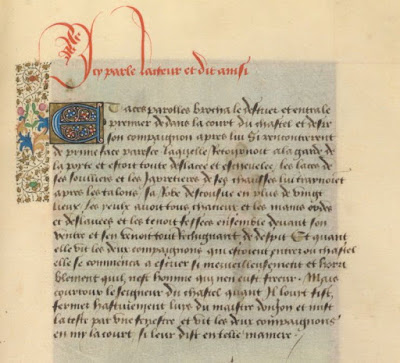 Icy parle lacteur et dit ainsi
Et aces parolles brocha le destrier et entra le
premier dedans la court du chastel et desir
son compaignon apres lui Si rencontrerent
de prime face paresce laquelle retournoit ala garde de
la porte et estoit toute deslacee et eschevelee les laces de
ses souliers et les Jartieres de ses chausses lui trainoient
apres les talons sa robe descousue en plus de vingt
lieux les yeulx avoit tous chacieux et les mains ordes
et deslavees et les tenoit fessees ensemble devant son
ventre et sen venoit tout rechignant de despit Et quant
elle vit les deux compaignons qui estoient entrez ou chastel
elle se commenca a escrier si merveilleusement et horri
blement quil nest homme qui nen eust freour Mais
courroux le seigneur du chastel quant Il louyt sist
fermer hastivement luys du maistre donjon et mist
la teste par une fenestre et vit les deux compaignons
en my la court si leur dist en telle maniere